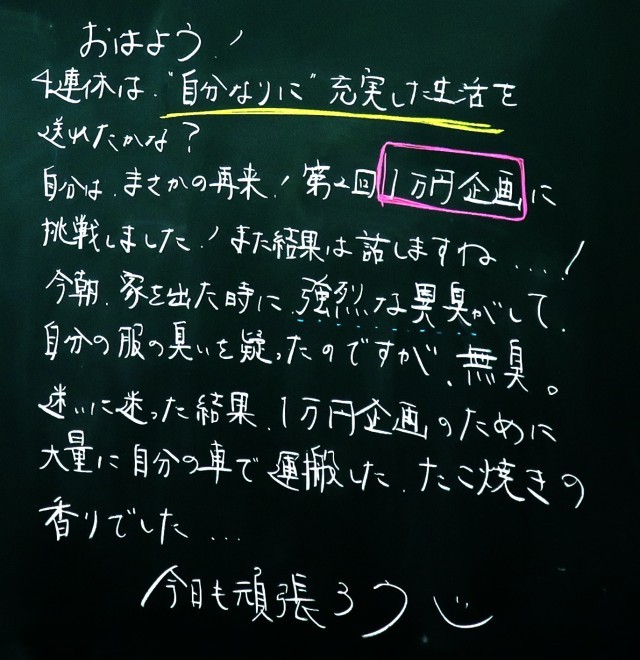 おはよう!
4連休は、"自分なりに"充実した生活を
送れたかな?
自分は、まさかの再来!第2回1万円企画に
挑戦しました!また結果は話しますね....!
今朝、家を出た時に、強烈な異臭がして、
自分の服の臭いを疑ったのですが、無臭。
迷いに迷った結果、1万円企画のために
大量に自分の車で運搬した、たこ焼きの
香りでした...
今日も頑張ろう